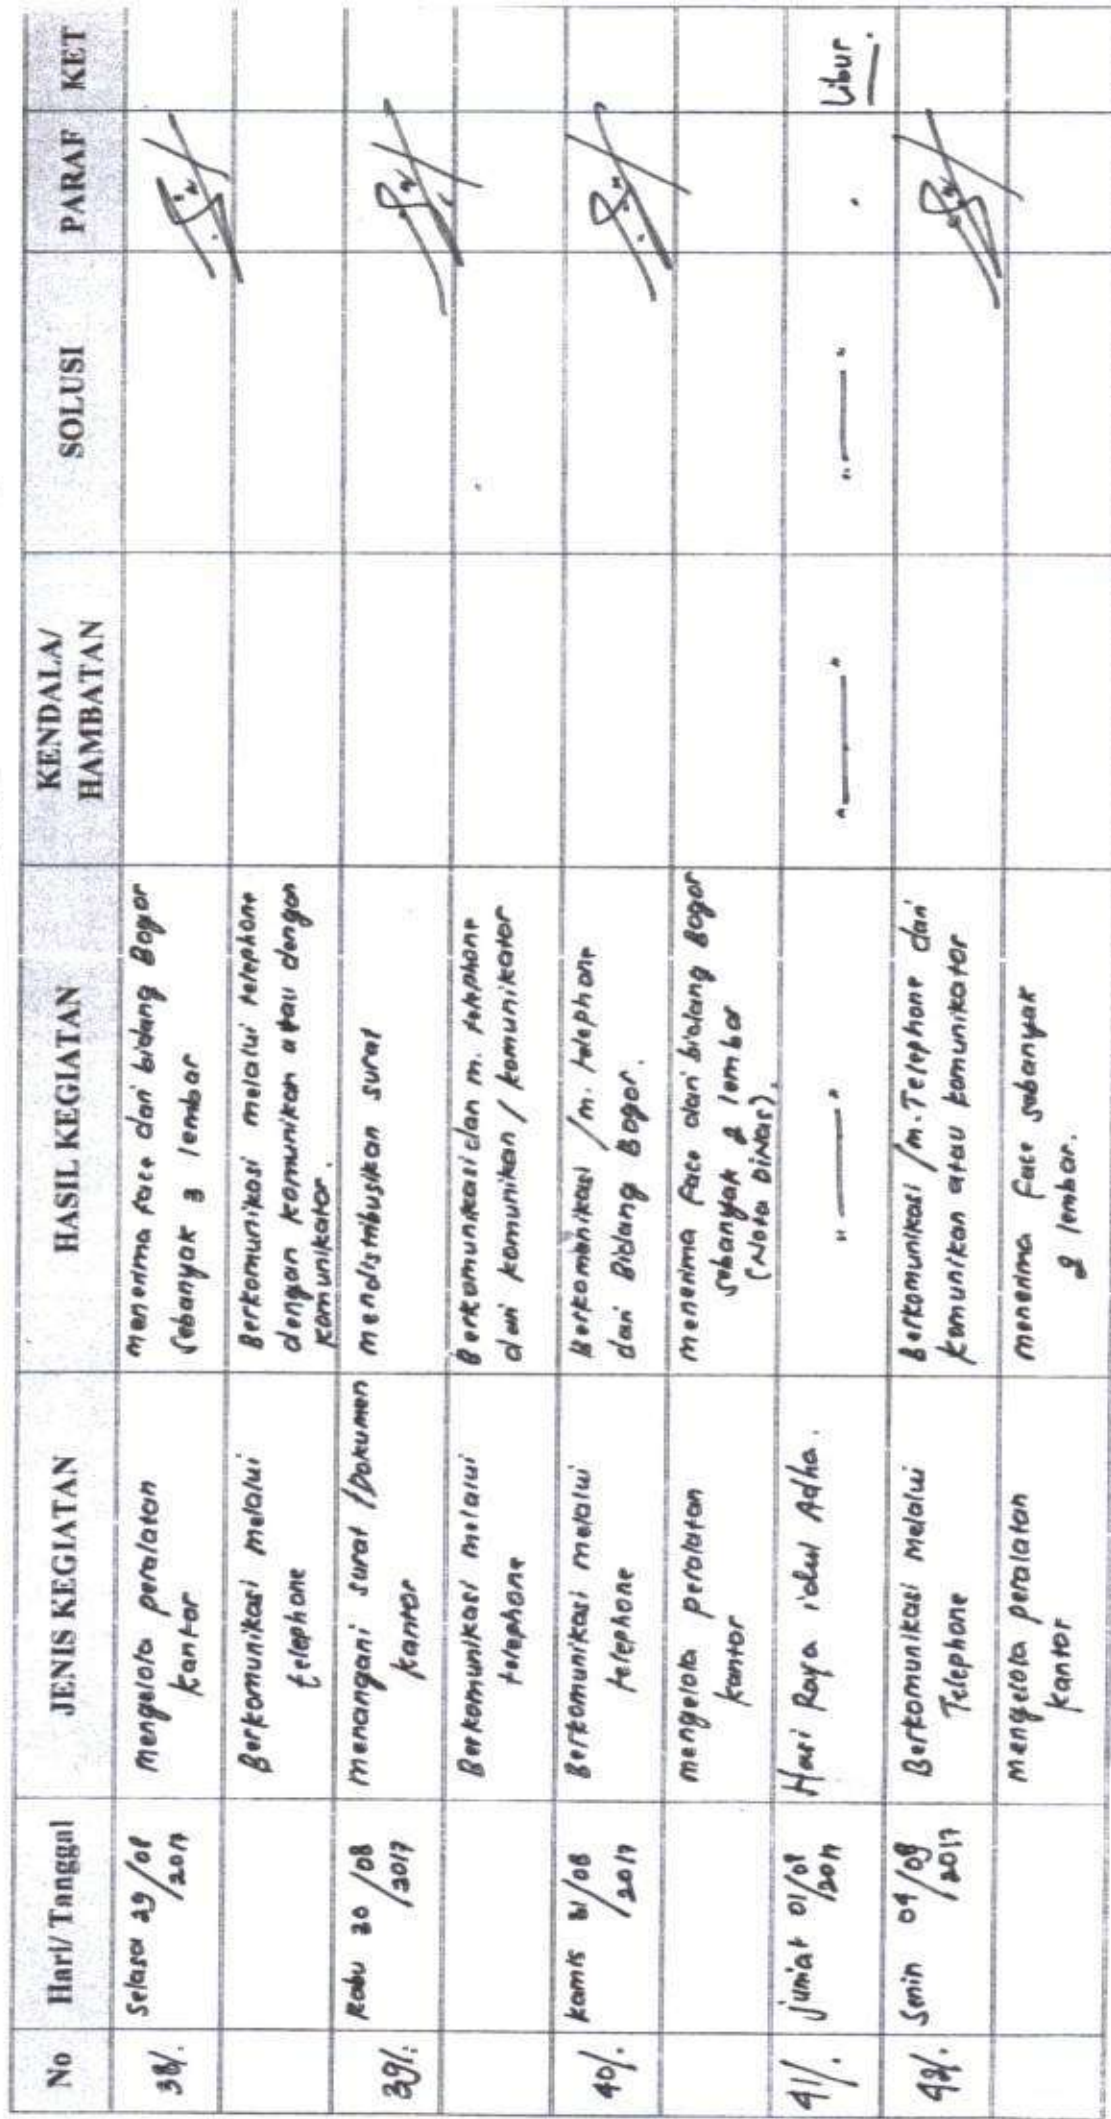 No Hari/ Tanggal JENIS KEGIATAN HASIL KEGIATAN KENDALA/ HAMBATAN SOLUSI PARAF KET
38/. Selasa 29/08/2017 mengelola peralatan kantor menerima face dari bidang Bogor sebanyak 3 lembar
Berkomunikasi melalui telephone Berkomunikasi melalui telephone dengan komunikan atau dengan komunikator.
39/. Rabu 30/08/2017 menangani surat /Dokumen kantor mendistribusikan surat
Berkomunikasi melalui telephone Berkomunikasi dan m. telephone dari komunikan / komunikator
40/. kamis 31/08/2017 Berkomunikasi melalui telephone Berkomonikasi /m. telephone dari Bidang Bogor.
mengelola peralatan kantor menerima face dari bidang Bogor sebanyak 2 lembar (Nota Dinas).
41/. jumat 01/09/2017 Hari Raya idhul Adha. "——" "——" "——" Libur.
42/. Senin 04/09/2017 Berkomunikasi melalui Telephone Berkomunikasi /m. Telephone dari komunikan atau komunikator
mengelola peralatan kantor menerima face sebanyak 2 lembar.